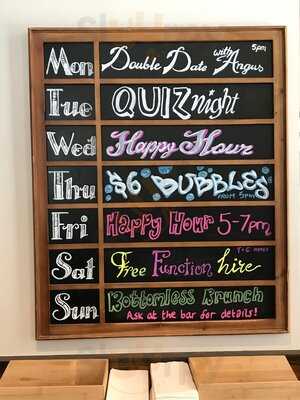 Mon Double Date with Angus 5pm
Tue QUIZ night
Wed Happy Hour
Thu $6 BUBBLES FROM 5pm
Fri Happy Hour 5-7pm
Sat Free Function hire
Sun Bottomless Brunch
Ask at the bar for details!